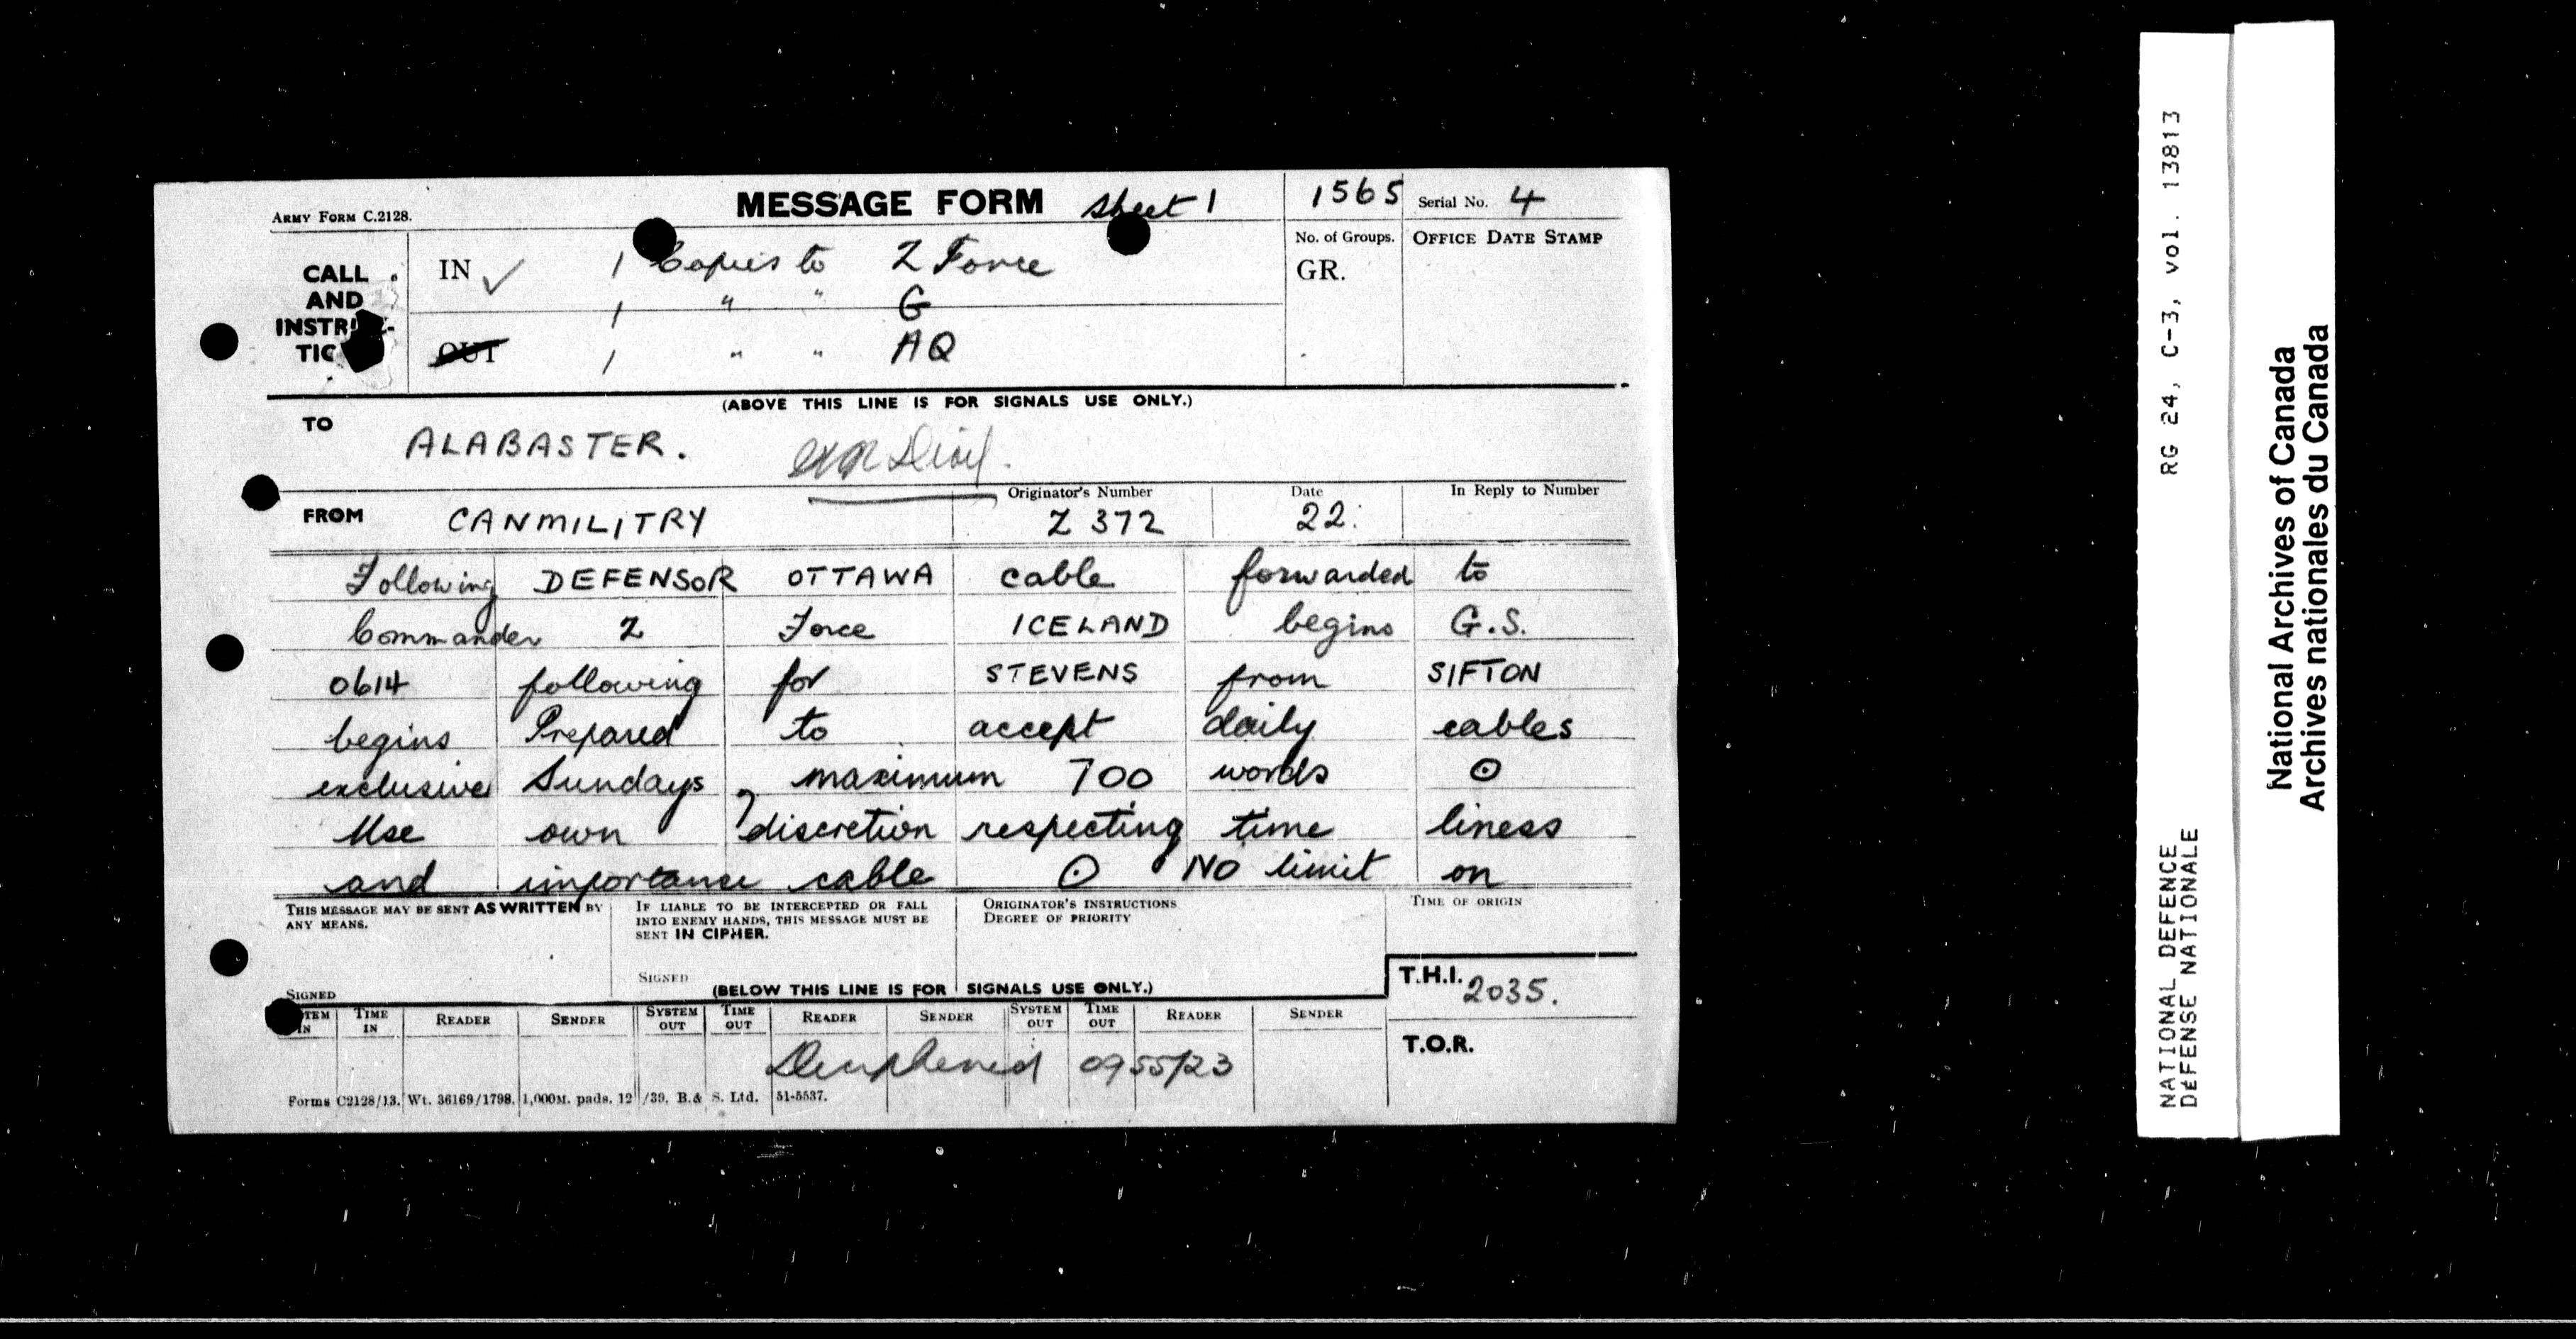 ARMY FORM C.2128.
MESSAGE FORM Sheet 1
1565 Serial No. 4
CALL AND INSTRU-TIO
IN ✓ 1 Copies to Z Force
1 " " G
OUT 1 " " AQ
No. of Groups. OFFICE DATE STAMP
GR.
(ABOVE THIS LINE IS FOR SIGNALS USE ONLY.)
TO ALABASTER.
FROM CANMILITRY
Originator's Number Z 372
Date 22.
In Reply to Number
Following DEFENSOR OTTAWA cable forwarded to
Commander Z Force ICELAND begins G.S.
0614 following for STEVENS from SIFTON
begins Prepared to accept daily cables
exclusive Sundays, maximum 700 words ⊙
Use own discretion respecting time liness
and importance cable ⊙ NO limit on
THIS MESSAGE MAY BE SENT AS WRITTEN BY
ANY MEANS.
SIGNED
IF LIABLE TO BE INTERCEPTED OR FALL
INTO ENEMY HANDS, THIS MESSAGE MUST BE
SENT IN CIPHER.
SIGNED
ORIGINATOR'S INSTRUCTIONS
DEGREE OF PRIORITY
TIME OF ORIGIN
(BELOW THIS LINE IS FOR SIGNALS USE ONLY.)
T.H.I. 2035.
T.O.R.
TEM IN TIME IN READER SENDER SYSTEM OUT TIME OUT READER SENDER SYSTEM OUT TIME OUT READER SENDER
Deciphered 0955/23
Forms C2128/13. Wt. 36169/1798. 1,000M. pads. 12/39. B.& S. Ltd. 51-5537.
RG 24, C-3, vol. 13813
NATIONAL DEFENCE
DÉFENSE NATIONALE
National Archives of Canada
Archives nationales du Canada